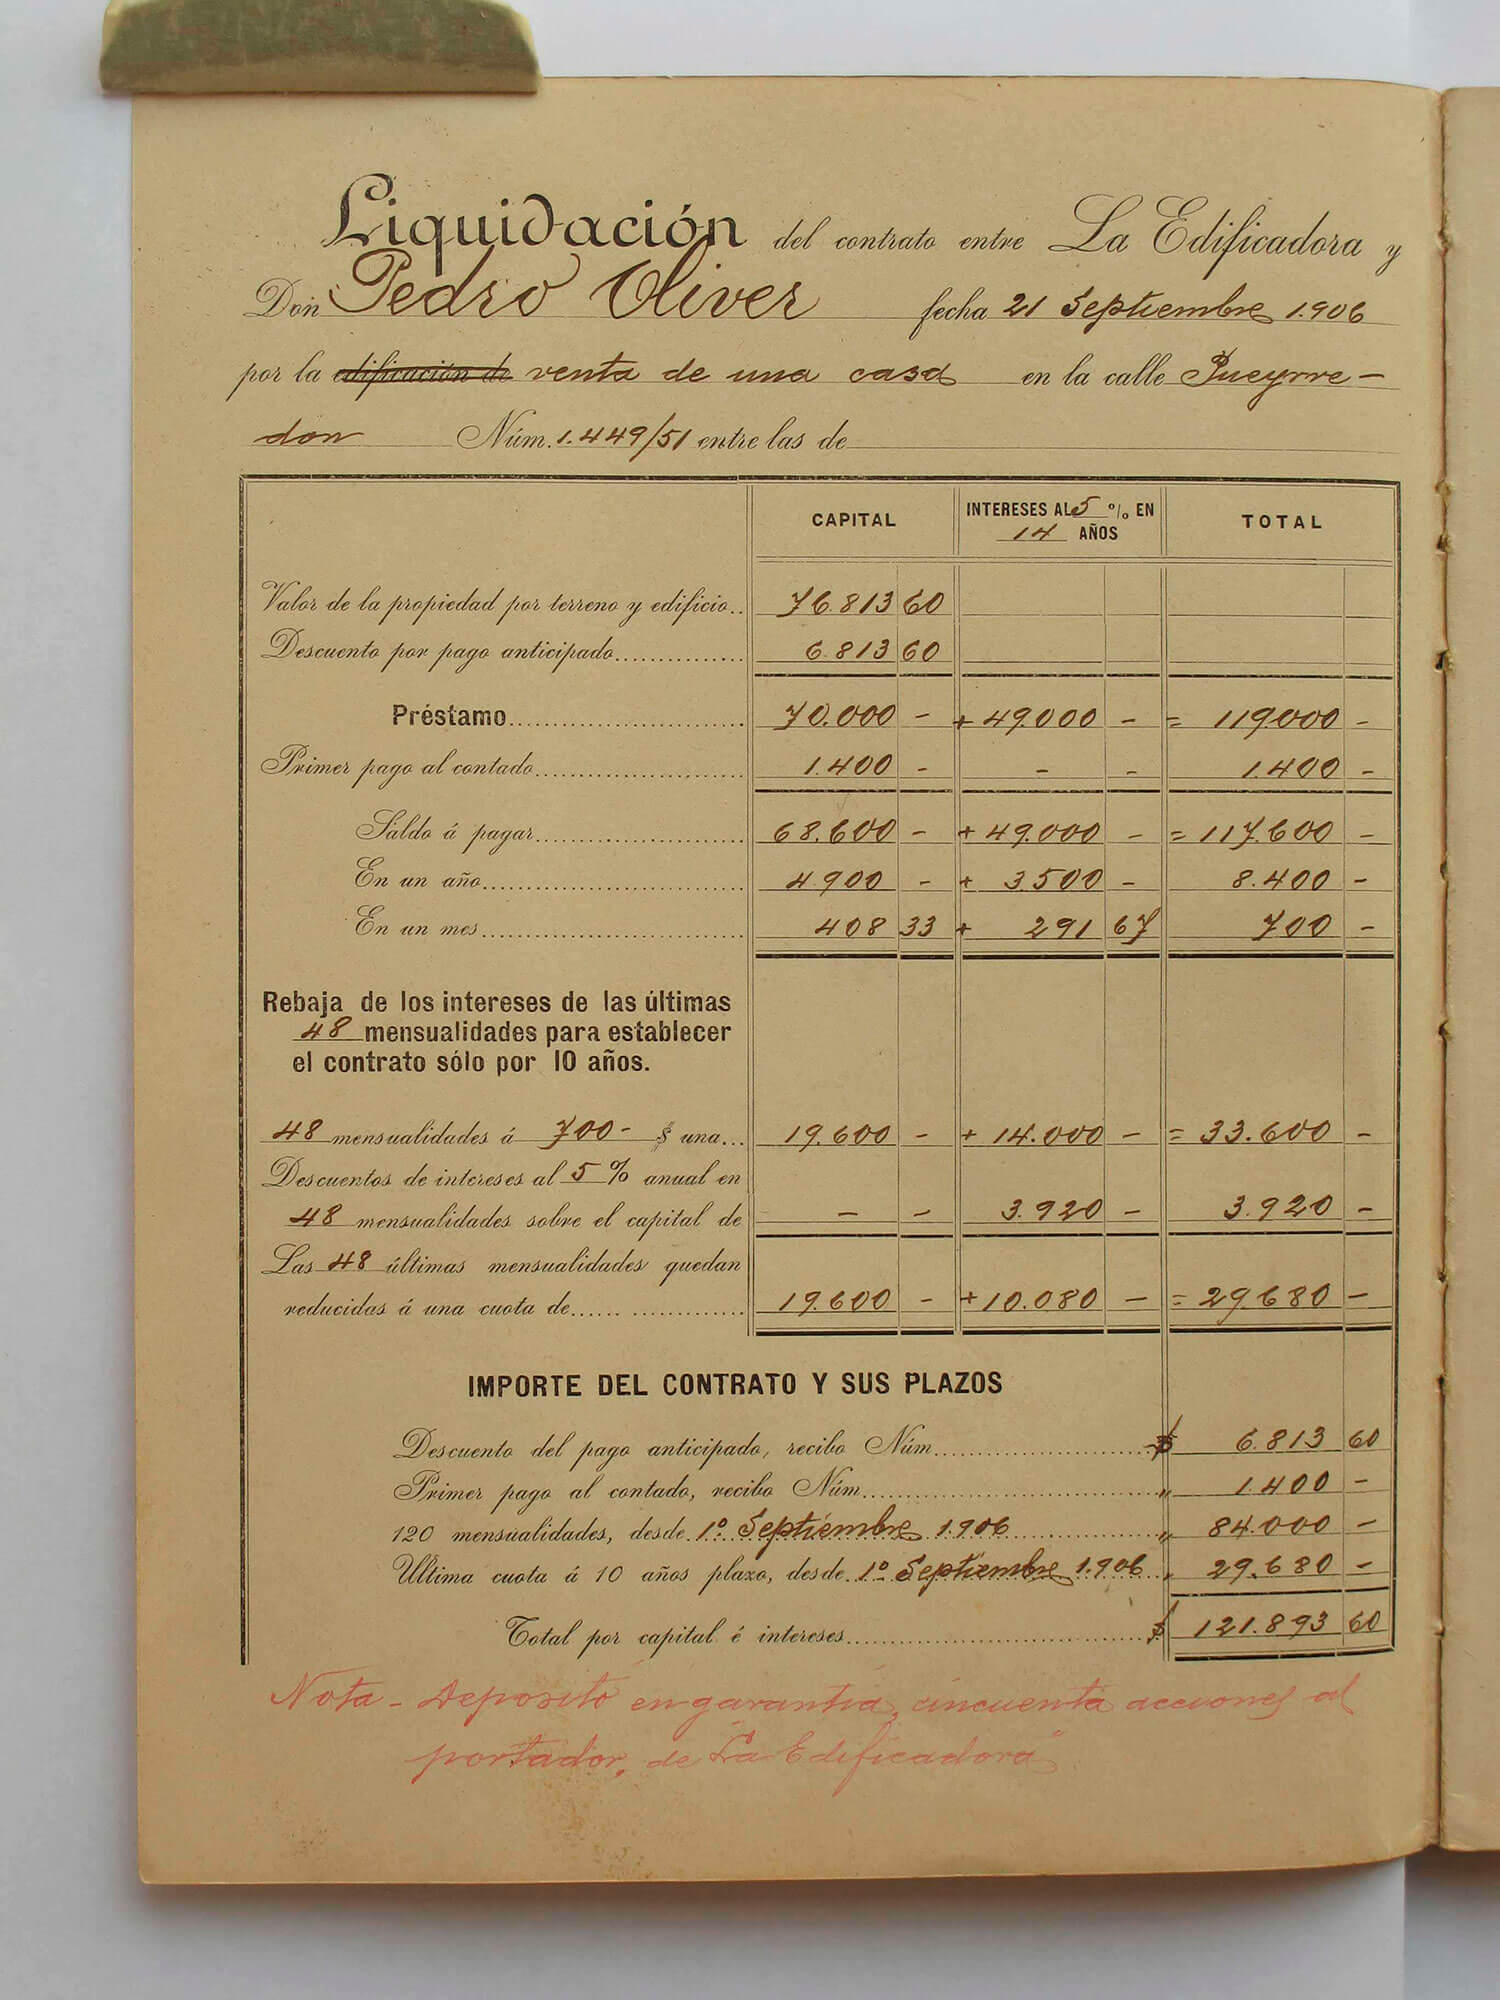 Liquidación del contrato entre La Edificadora y
Don Pedro Oliver fecha 21 Septiembre 1.906
por la edificación de venta de una casa en la calle Pueyrre-
don Núm. 1.449/51 entre las de
CAPITAL INTERESES AL 5 % EN 14 AÑOS TOTAL
Valor de la propiedad por terreno y edificio.. 76.813 60
Descuento por pago anticipado............... 6.813 60
Préstamo......................... 70.000 - + 49.000 - = 119.000 -
Primer pago al contado...................... 1.400 - - - 1.400 -
Saldo á pagar...................... 68.600 - + 49.000 - = 117.600 -
En un año............................ 4.900 - + 3.500 - 8.400 -
En un mes............................ 408 33 + 291 67 700 -
Rebaja de los intereses de las últimas
48 mensualidades para establecer
el contrato sólo por 10 años.
48 mensualidades á 700- $ una... 19.600 - + 14.000 - = 33.600 -
Descuentos de intereses al 5 % anual en
48 mensualidades sobre el capital de - - 3.920 - 3.920 -
Las 48 últimas mensualidades quedan
reducidas á una cuota de...... ............. 19.600 - + 10.080 - = 29.680 -
IMPORTE DEL CONTRATO Y SUS PLAZOS
Descuento del pago anticipado, recibo Núm........................ $ 6.813 60
Primer pago al contado, recibo Núm................................ „ 1.400 -
120 mensualidades, desde 1º Septiembre 1.906 ................ „ 84.000 -
Ultima cuota á 10 años plazo, desde 1º Septiembre 1.906 ... „ 29.680 -
Total por capital é intereses.................................. $ 121.893 60
Nota - Deposito en garantia, cincuenta acciones al
portador, de "La Edificadora"